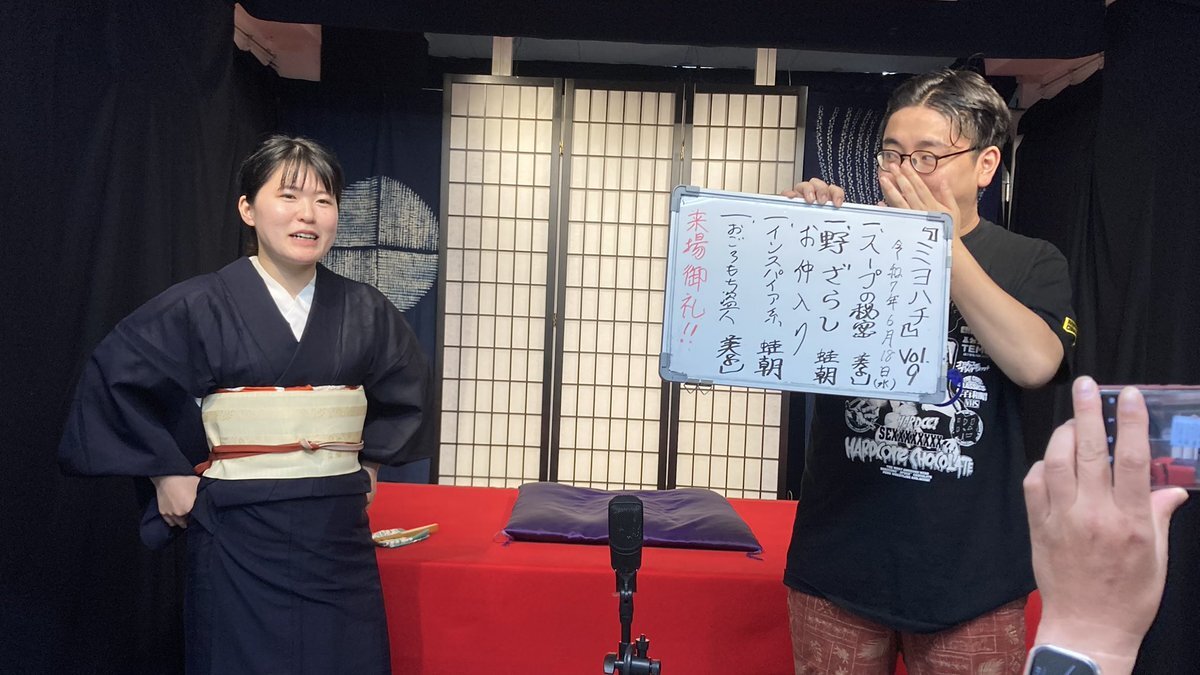 『ミミヨハチ』 Vol.9
令和7年6月18日(水)
一、スープの秘密
一、野ざらし 蛙朝
お仲入り
一、インスパイア系 蛙朝
一、おごろもち盗人
来場御礼!!
HARDCORE CHOCOLATE